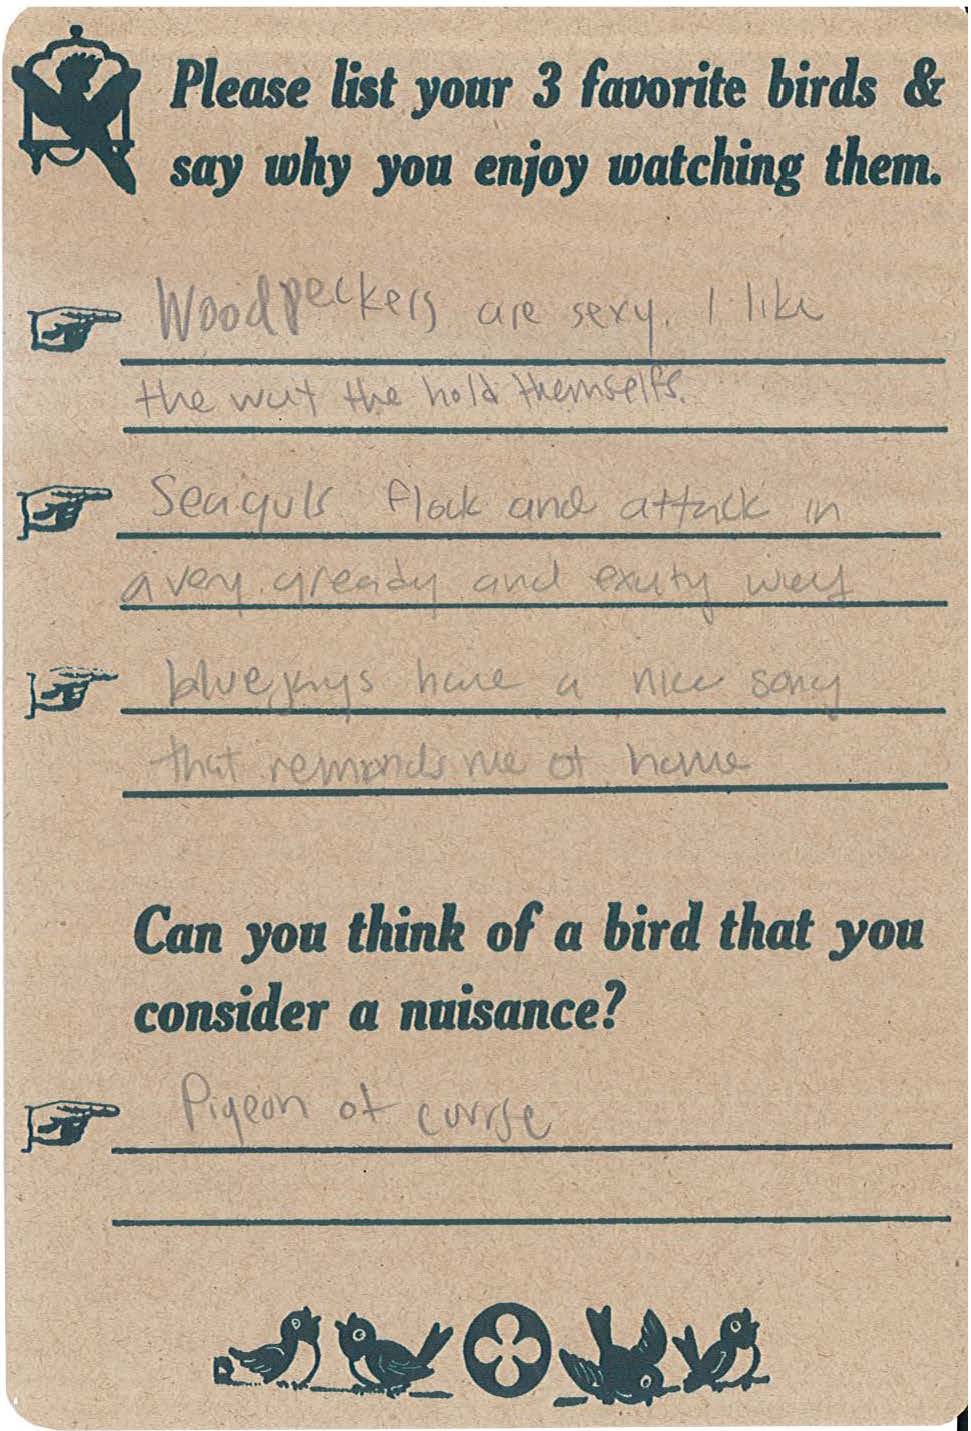 Please list your 3 favorite birds &
say why you enjoy watching them.
Woodpeckers are sexy. I like
the wat the hold themselfs.
Seaguls flock and attack in
a very gready and exuty way
bluejays have a nice song
that reminds me of home
Can you think of a bird that you
consider a nuisance?
Pigeon of currse